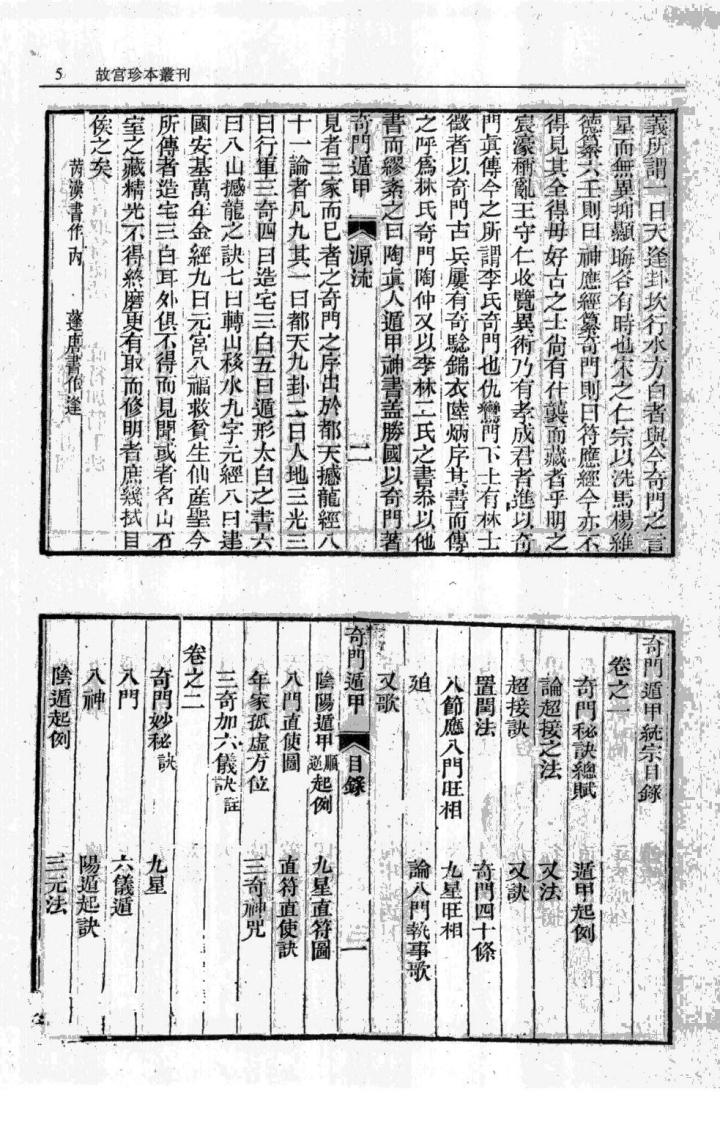 5 故宮珍本叢刊
義所謂一日天逢卦坎行水方白者與今奇門之言
星而無異抑顯晦各有時也宋之仁宗以洗馬楊維
德纂六壬則曰神應經纂奇門則曰符應經今亦不
得見其全得毋好古之士尚有什襲而藏者乎明之
宸濠稱亂王守仁收覽異術乃有李成君者進以奇
門真傳今之所謂李氏奇門也仇鸞門下士有林士
徵者以奇門占兵屢有奇驗錦衣陸炳序其書而傳
之呼爲林氏奇門陶仲文以李林二氏之書叅以他
書而繆紊之曰陶真人遁甲神書蓋勝國以奇門著
奇門遁甲 源流 二
見者三家而已者之奇門之序出於都天撼龍經八
十一論者凡九其一曰都天九卦二曰人地三光三
曰行軍三奇四曰造宅三白五曰遁形太白之書六
曰八山撼龍之訣七曰轉山移水九字元經八曰建
國安基萬年金經九曰元宮八福救貧生仙產聖今
所傳者造宅三白耳外俱不得而見聞或者名山石
室之藏精光不得終磨更有取而修明者庶幾拭目
俟之矣
芮漢書作内 蓬唐書作逢
奇門遁甲統宗目錄
卷之一
奇門秘訣總賦 遁甲起例
論超接之法 又法
超接訣 又訣
置閏法 奇門四十條
八節應八門旺相 九星旺相
廹 論八門執事歌
又歌
奇門遁甲 目錄 一
陰陽遁甲順逆起例 九星直符圖
八門直使圖 直符直使訣
年家孤虛方位 三奇神咒
三奇加六儀訣註
卷之二
奇門妙秘訣 九星
八門 六儀遁
八神 陽遁起訣
陰遁起例 三元法